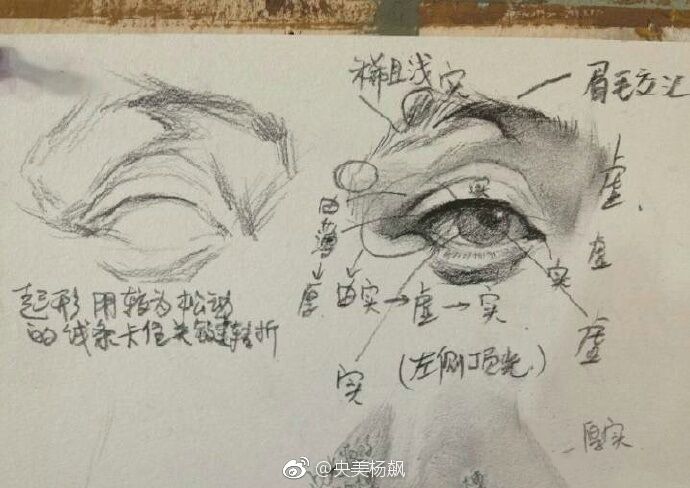 稀且浅
实
眉毛方汇
虚
实
由
薄
↓
厚
由实→虚→实
虚
实
虚
实
(左侧顶光)
起形用较为松动
的线条卡住关键转折
厚实
@央美杨飙